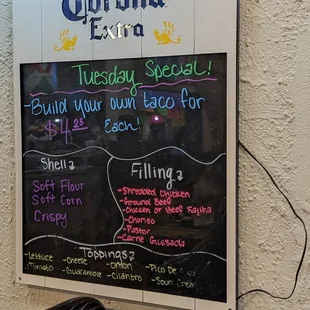 Corona
Extra
Tuesday Special!
-Build your own taco for
$4.25 Each!
Shells
Soft Flour
Soft Corn
Crispy
Fillings
-Shredded Chicken
-Ground Beef
-Chicken or Beef Fajita
-Chorizo
-Pastor
-Carne Guisada
Toppings
-Lettuce -Cheese -Onion -Pico De
-Tomato -Guacamole -Cilantro -Sour Cream